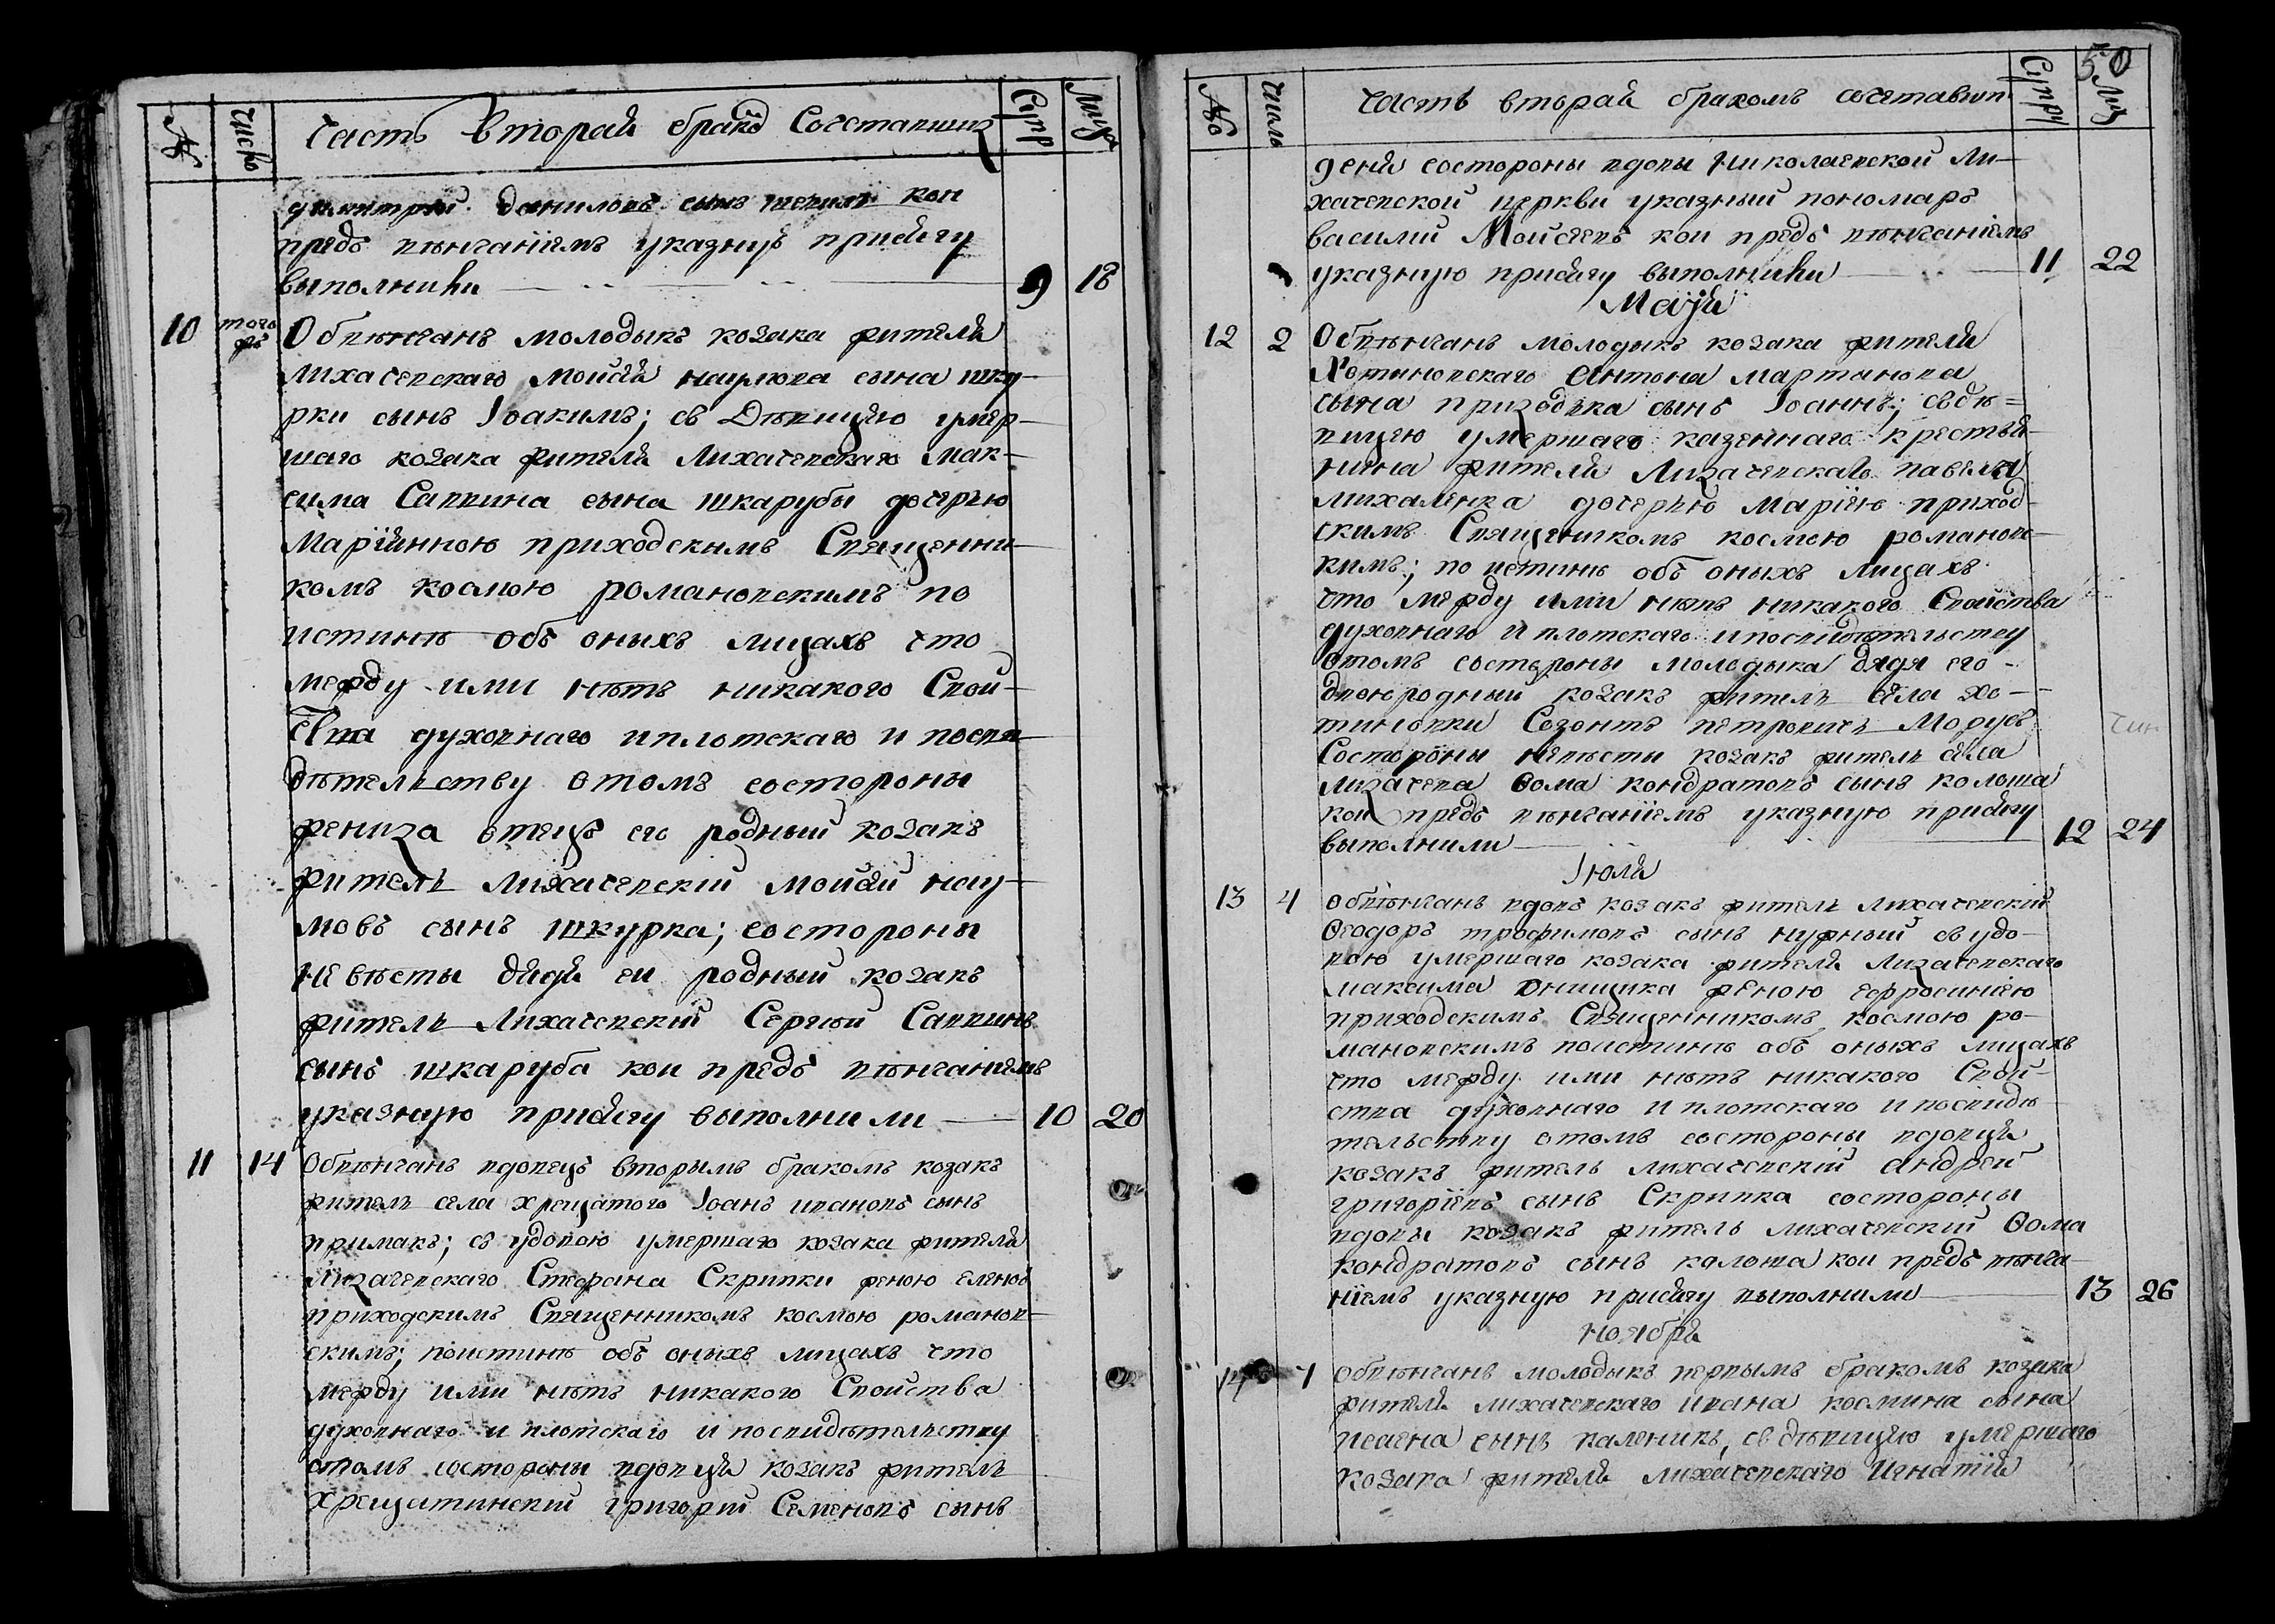 № число Часть Вторай бракѡ Сочетавших Супр Лиц
димитрій даниловъ сынъ кои
предъ вѣнчаніемъ указную присягу
выполнили 9 18
10 того жъ Обвѣнчанъ молодыкъ козака жителя
Лихачевскаго Моисея наумова сына шку-
рки сынъ Іоакимъ; съ Дѣвицею умер-
шаго козака жителя Лихачевскаго Мак-
сима Саввина сына шкарубы дочерью
Маріинною приходскимъ Священни-
комъ космою романовскимъ по
истинѣ объ оныхъ лицахъ что
между ими нѣтъ никакого Свой-
ства духовнаго и плотскаго и посви
дѣтельству отомъ состороны
жениха отецъ его родный козакъ
житель Лихачевскій Моисей нау-
мовъ сынъ шкурка; состороны
невѣсты дядя еи родный козакъ
житель Лихачевскій Сергій Саввинъ
сынъ шкаруба кои предъ вѣнчаніемъ
указную присягу выполнили 10 20
11 14 Обвѣнчанъ вдовецъ вторымъ бракомъ козакъ
житель села хрещатого Іоанъ ивановъ сынъ
примакъ; съ удовою умершаго козака жителя
Лихачевскаго Стефана Скрипки женою еленою
приходскимъ Священникомъ космою романов-
скимъ; поистинѣ объ оныхъ лицахъ что
между ими нѣтъ никакого Свойства
духовнаго и плотскаго и посвидѣтельству
отомъ состороны вдовця козакъ житель
хрещатинскій григорій Семеновъ сынъ
50
№ Число Часть вторай бракомъ сочетавшп Супру Лиц
деня состороны вдовы николаевской Ли-
хачевской церкви указный пономаръ
василій Моисеевъ кои предъ вѣнчаніемъ
указную присягу выполнили 11 22
Маія
12 2 Обвѣнчанъ молодыкъ козака жителя
Хотиновскаго Антона Мартинова
сына приходька сынъ Іоаннъ; съдѣ=
вицею умершаго казеннаго крестья-
нина жителя Лихачевскаго павела
михаленка дочерью Маріею приход-
скимъ Священикомъ космою романовс-
кимъ; по истинѣ объ оныхъ лицахъ
что между ими нѣтъ никакого Свойства
духовнаго и плотскаго и посвидѣтельству
отомъ состороны молодыка дядя его
двоюродный козакъ житель села хо-
тиновки Созонтъ петровичъ
Состороны невѣсти козакъ житель села
Лихачева Ѳома кондратовъ сынъ калоша
кои предъ вѣнчаніемъ указную присягу
выполнили 12 24
Іюля
13 4 обвѣнчанъ вдовъ козакъ житель лихачевскій
Ѳеодоръ трофимовъ сынъ нужный съ удо-
вою умершаго козака жителя Лихачевскаго
максима женою ефросиніею
приходскимъ Священникомъ космою ро-
мановскимъ поистинѣ объ оныхъ лицахъ
что между ими нѣтъ никакого Свой-
ства духовнаго и плотскаго и посвидѣ
тельству отомъ состороны вдовця
козакъ житель лихачевскій андрей
григоріевъ сынъ Скрипка состороны
вдовы козакъ житель лихачевскій Ѳома
кондратовъ сынъ калоша кои предъ вѣнча-
ніемъ указную присягу выполнили 13 26
ноября
14 7 обвѣнчанъ молодыкъ первымъ бракомъ козака
жителя лихачевскаго ивана космина сына
исаена сынъ каленикъ, съ дѣвицею умершаго
козака жителя лихачевскаго Игнатія